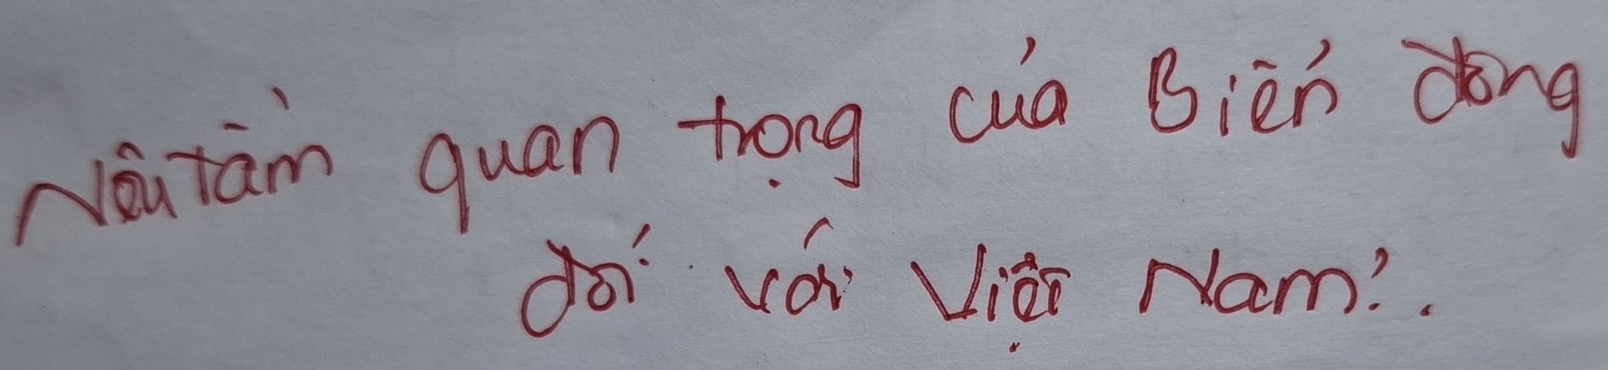 Nêu tầm quan trọng của Biển đông
đối với Việt Nam?.